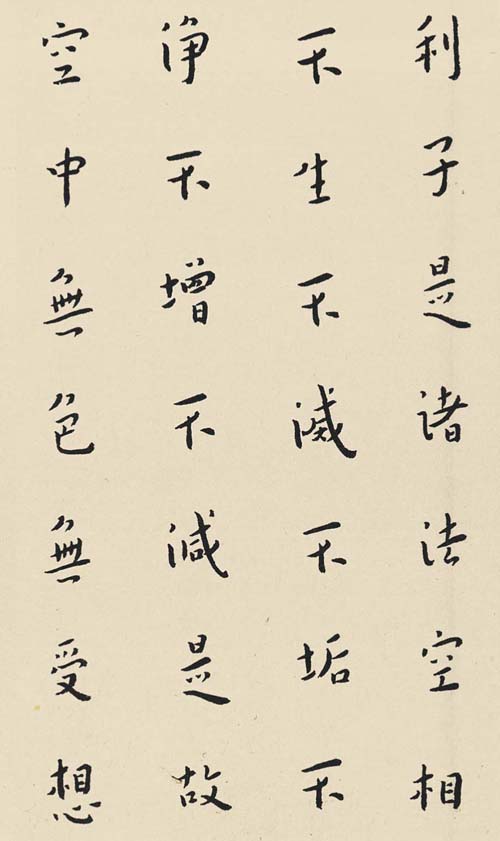 利子是諸法空相
不生不滅不垢不
淨不增不減是故
空中無色無受想